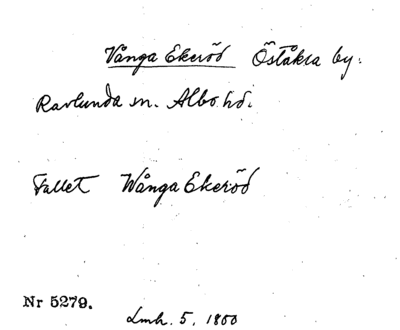 Vånga Ekeröd Öståkra by.
Ravlunda sn. Albo hd.
Fallet Wånga Ekeröd
Nr 5279.
Lmh. 5, 1800